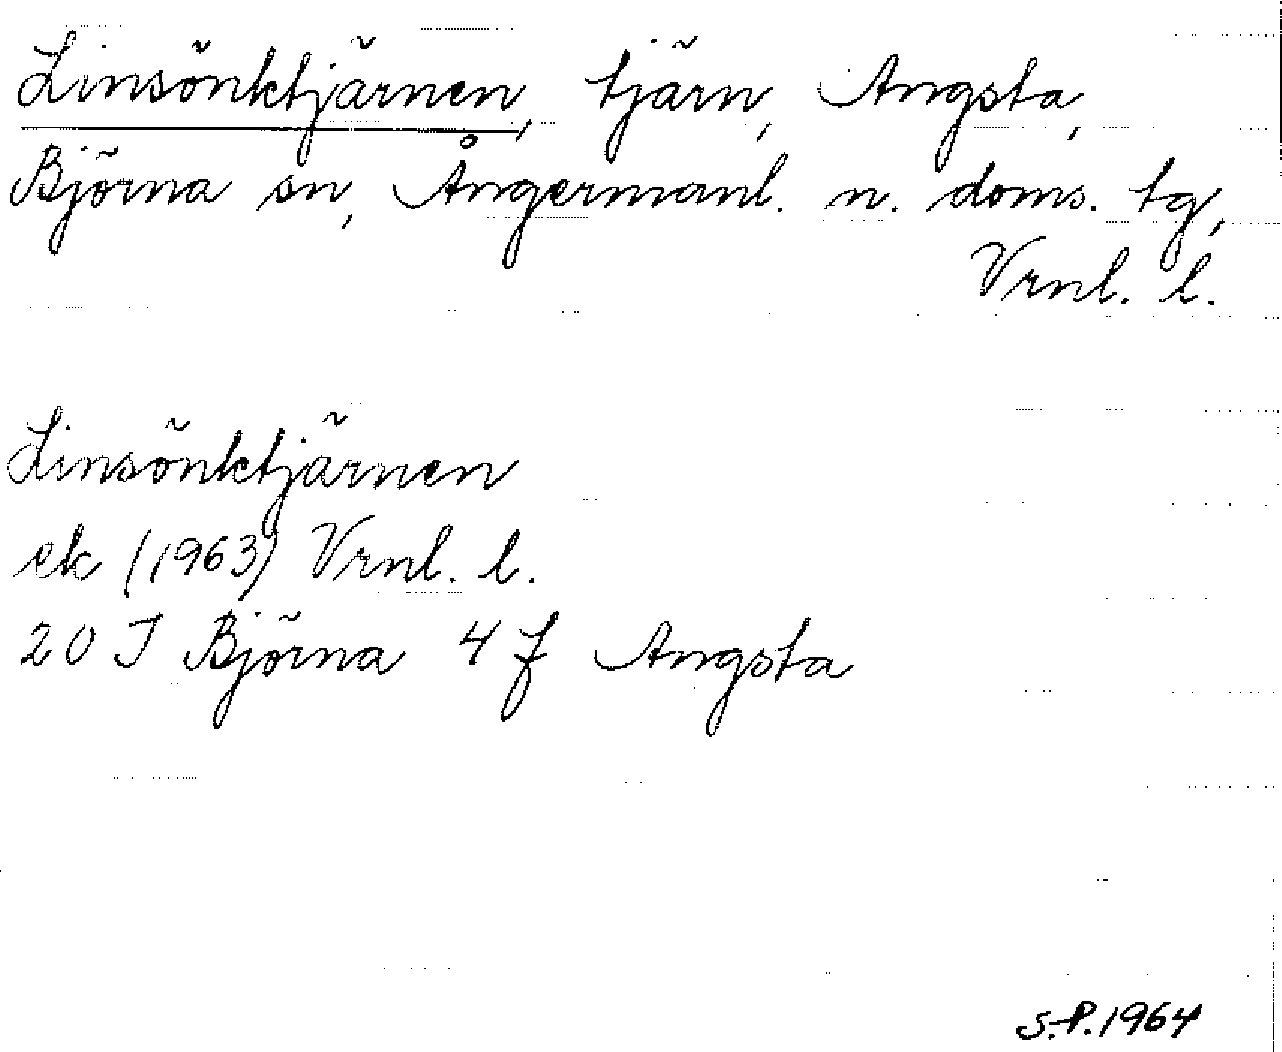 Linsönktjärnen, tjärn, Angsta,
Björna sn, Ångermanl. n. doms. tg,
Vrnl. l.
Linsönktjärnen
ek (1963) Vrnl. l.
20 J Björna 4 f Angsta
S.P. 1964